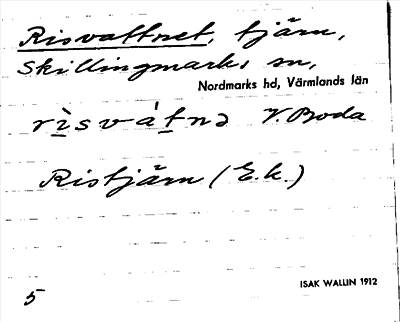 Risvattnet, tjärn,
Skillingmarks sn,
Nordmarks hd, Värmlands län
rìsvátnə V. Boda
Ristjärn (E.k.)
ISAK WALLIN 1912
5